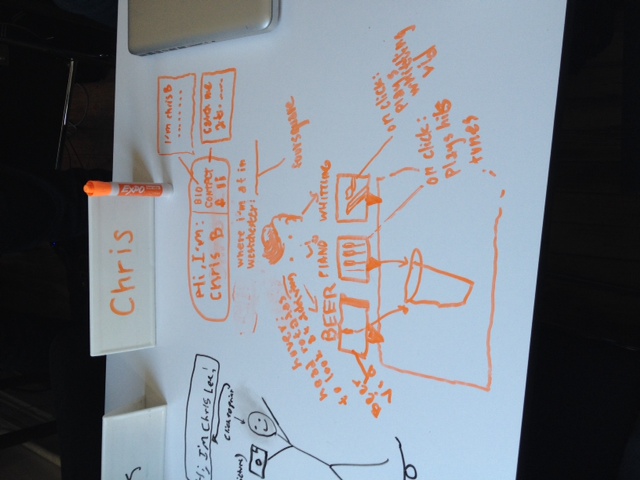 Chris
EXPO
Hi, I'm Chris Lee!
Hi, I'm:
Chris B
BIO
CONTACT
I'm Chris B
Catch me
at.
where i'm at in
westchester:
foursquare
hover:
head rotates
to look
BEER
PIANO
WHITTLING
Beer
Vid
on click:
plays
whittling
vid
on click:
Plays hits
tunes